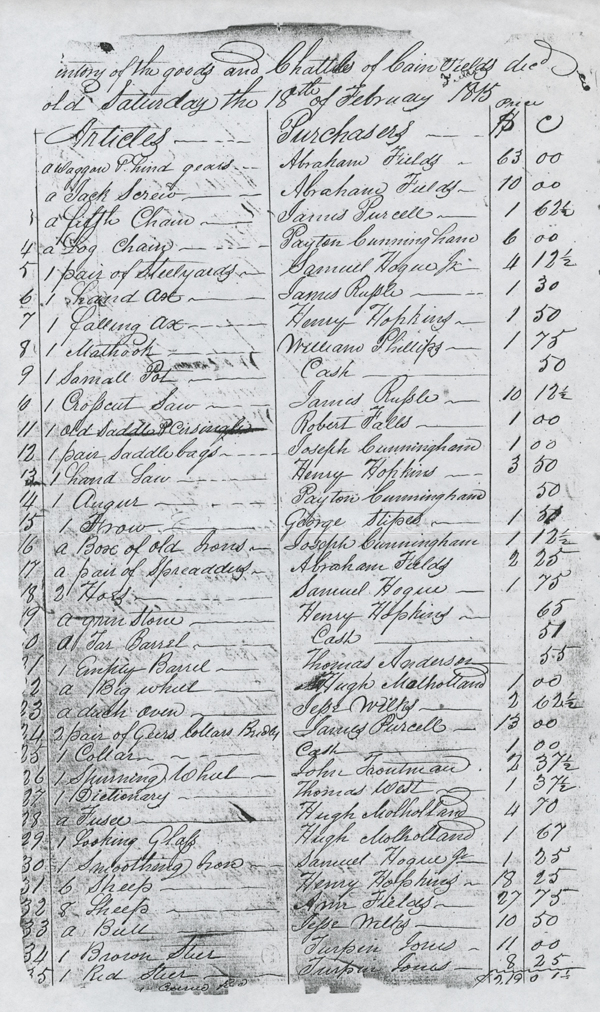 intory of the goods and Chattles of Cain Fields decd
old Saturday the 18th of February 1815
Price
Articles Purchasers $ C
a Waggon & hind gears Abraham Fields 63 00
a Jack Screw Abraham Fields 10 00
3 a fifth Chain James Purcell 1 62½
4 a Log Chain Payton Cunningham 6 00
5 1 pair of Steelyards Samuel Hogue Jr 4 12½
6 1 hand Ax James Rusle 30
7 1 falling Ax Henry Hopkins 1 50
8 1 Mathook William Phillips 1 75
9 1 Samall Pot Cash 50
6 1 Crosscut Saw James Rusle 10 12½
11 1 old Saddle & Cirsingle Robert Falls 1 00
12 1 pair Saddle bags Joseph Cunningham 1 00
13 1 hand Saw Henry Hopkins 3 50
14 1 Augur Payton Cunningham 50
15 1 Frow George Stipes 1
16 a Box of old Irons Joseph Cunningham 1 12½
17 a pair of Spreaddus Abraham Fields 2 25
18 2 Hoes Samuel Hogue 1 75
19 a grin stone Henry Hopkins 65
0 a Tar Barrel Cash 51
21 1 Empty Barrel Thomas Anderson 55
22 a Big wheel Hugh Malholland 1 00
23 a duch oven Jesse Wilks 2 62½
24 2 pair of Geers Collars Bridles James Purcell 13 00
25 1 Collar Cash 1 00
26 1 Spinning Wheel John Troutman 2 37½
27 1 Dictionary Thomas West 1 37½
28 a Fusee Hugh Molholland 4 70
29 1 Looking Glass Hugh Molholland 1 67
30 1 Smoothing Iron Samuel Hogue Jr 1 25
31 6 Sheep Henry Hopkins 18 25
32 8 Sheep Ann Fields 27 75
33 a Bull Jesse Wilks 10 50
34 1 Brown Steer Turpin Jones 11 00
35 1 Red Steer Turpin Jones 8 25